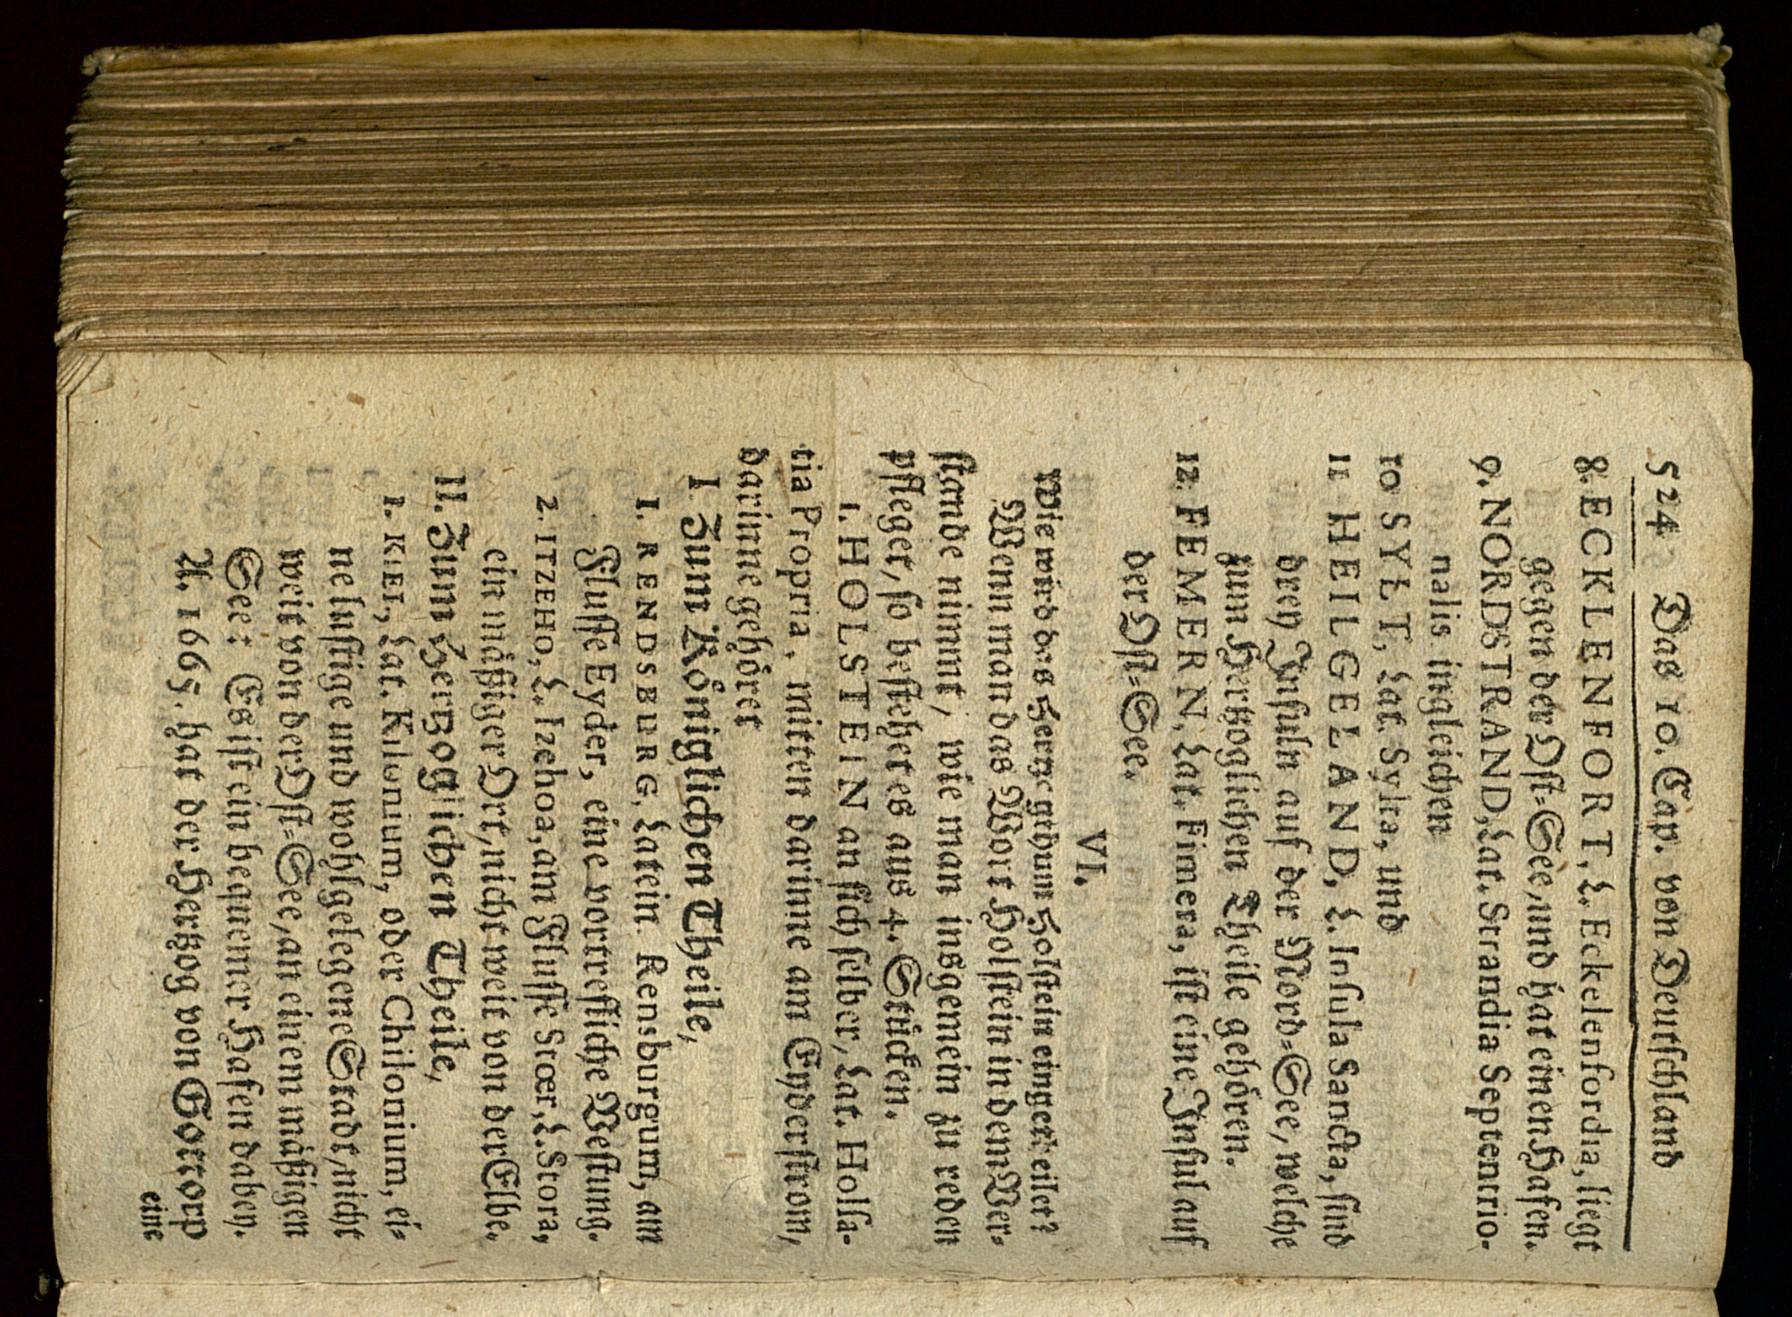 524 Das 10. Cap. von Deutschland
8. ECKLENFORT, L. Eckelenfordia, liegt
gegen der Ost-See, und hat einen Hafen.
9. NORDSTRAND, Lat. Strandia Septentrio-
nalis ingleichen
10 SYLT, Lat. Sylta, und
11 HEILGELAND, L. Insula Sancta, sind
drey Insuln auf der Nord-See, welche
zum Hertzoglichen Theile gehören.
12. FEMERN, Lat. Fimera, ist eine Insul auf
der Ost-See.
VI.
Wie wird das Hertzogthum Holstein eingetheilet?
Wenn man das Wort Holstein in dem Ver-
stande nimmt, wie man insgemein zu reden
pfleget, so bestehet es aus 4. Stücken.
1. HOLSTEIN an sich selber, Lat. Holsa-
tia Propria, mitten darinne am Eyderstrom,
darinne gehöret
I. Zum Königlichen Theile,
1. RENDSBURG, Latein. Rensburgum, am
Flusse Eyder, eine vortreffliche Vestung.
2. ITZEHO, L. Izehoa, am Flusse Stœr, L. Stora,
ein mäßiger Ort, nicht weit von der Elbe.
II. Zum Hertzoglichen Theile,
1. KIEL, Lat. Kilonium, oder Chilonium, ei-
ne lustige und wohlgelegene Stadt, nicht
weit von der Ost-See, an einem mäßigen
See: Es ist ein bequemer Hafen dabey.
A. 1665. hat der Hertzog von Gottorp
eine